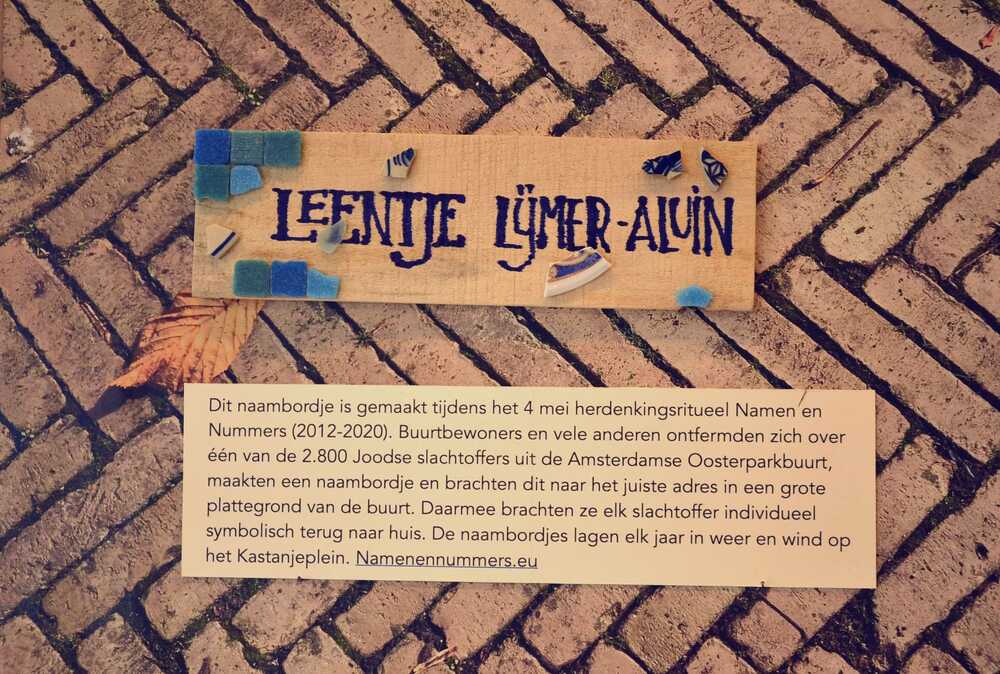 LEENTJE LIJMER-ALVIN
Dit naambordje is gemaakt tijdens het 4 mei herdenkingsritueel Namen en
Nummers (2012-2020). Buurtbewoners en vele anderen ontfermden zich over
één van de 2.800 Joodse slachtoffers uit de Amsterdamse Oosterparkbuurt,
maakten een naambordje en brachten dit naar het juiste adres in een grote
plattegrond van de buurt. Daarmee brachten ze elk slachtoffer individueel
symbolisch terug naar huis. De naambordjes lagen elk jaar in weer en wind op
het Kastanjeplein. Namenennummers.eu